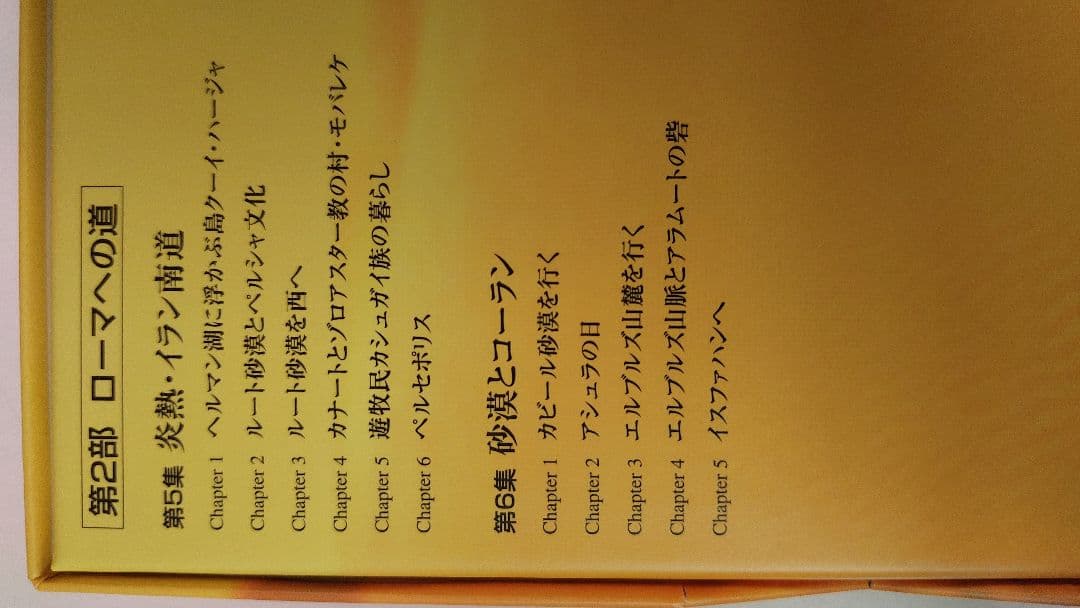 第2部 ローマへの道
第5集 炎熱・イラン南道
Chapter 1 ヘルマン湖に浮かぶ島クーイ・ハージャ
Chapter 2 ルート砂漠とペルシャ文化
Chapter 3 ルート砂漠を西へ
Chapter 4 カナートとゾロアスター教の村・モバレケ
Chapter 5 遊牧民カシュガイ族の暮らし
Chapter 6 ペルセポリス
第6集 砂漠とコーラン
Chapter 1 カビール砂漠を行く
Chapter 2 アシュラの日
Chapter 3 エルブルズ山麓を行く
Chapter 4 エルブルズ山脈とアラムートの砦
Chapter 5 イスファハンへ